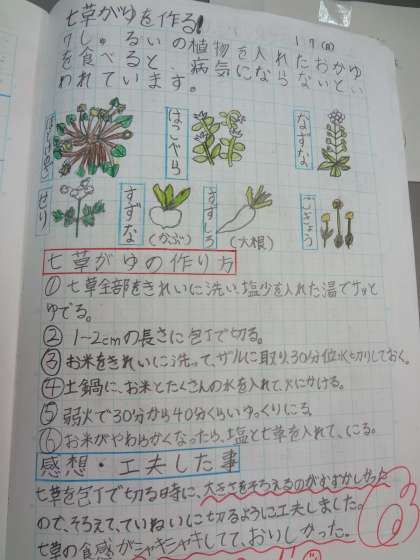 七草がゆを作る!
1/7(月)
7しゅるいの植物を入れたおかゆ
を食べると、病気にならないとい
われています。
はこべら
なずな
せり
すずな
(かぶ)
すずしろ
(大根)
ごぎょう
七草がゆの作り方
① 七草全部をきれいに洗い、塩少を入れた湯でサッと
ゆでる。
② 1~2cmの長さに包丁で切る。
③ お米をきれいに洗って、ザルに取り、30分位水切りしておく。
④ 土鍋に、お米とたくさんの水を入れて、火にかける。
⑤ 弱火で30分から40分くらいゆっくりにる。
⑥ お米がやわらかくなったら、塩と七草を入れて、にる。
感想・工夫した事
七草を包丁で切る時に、大きさをそろえるのがむずかしかった
ので、そろえて、ていねいに切るように工夫しました。
七草の食感がシャキシャキしてて、おいしかった。